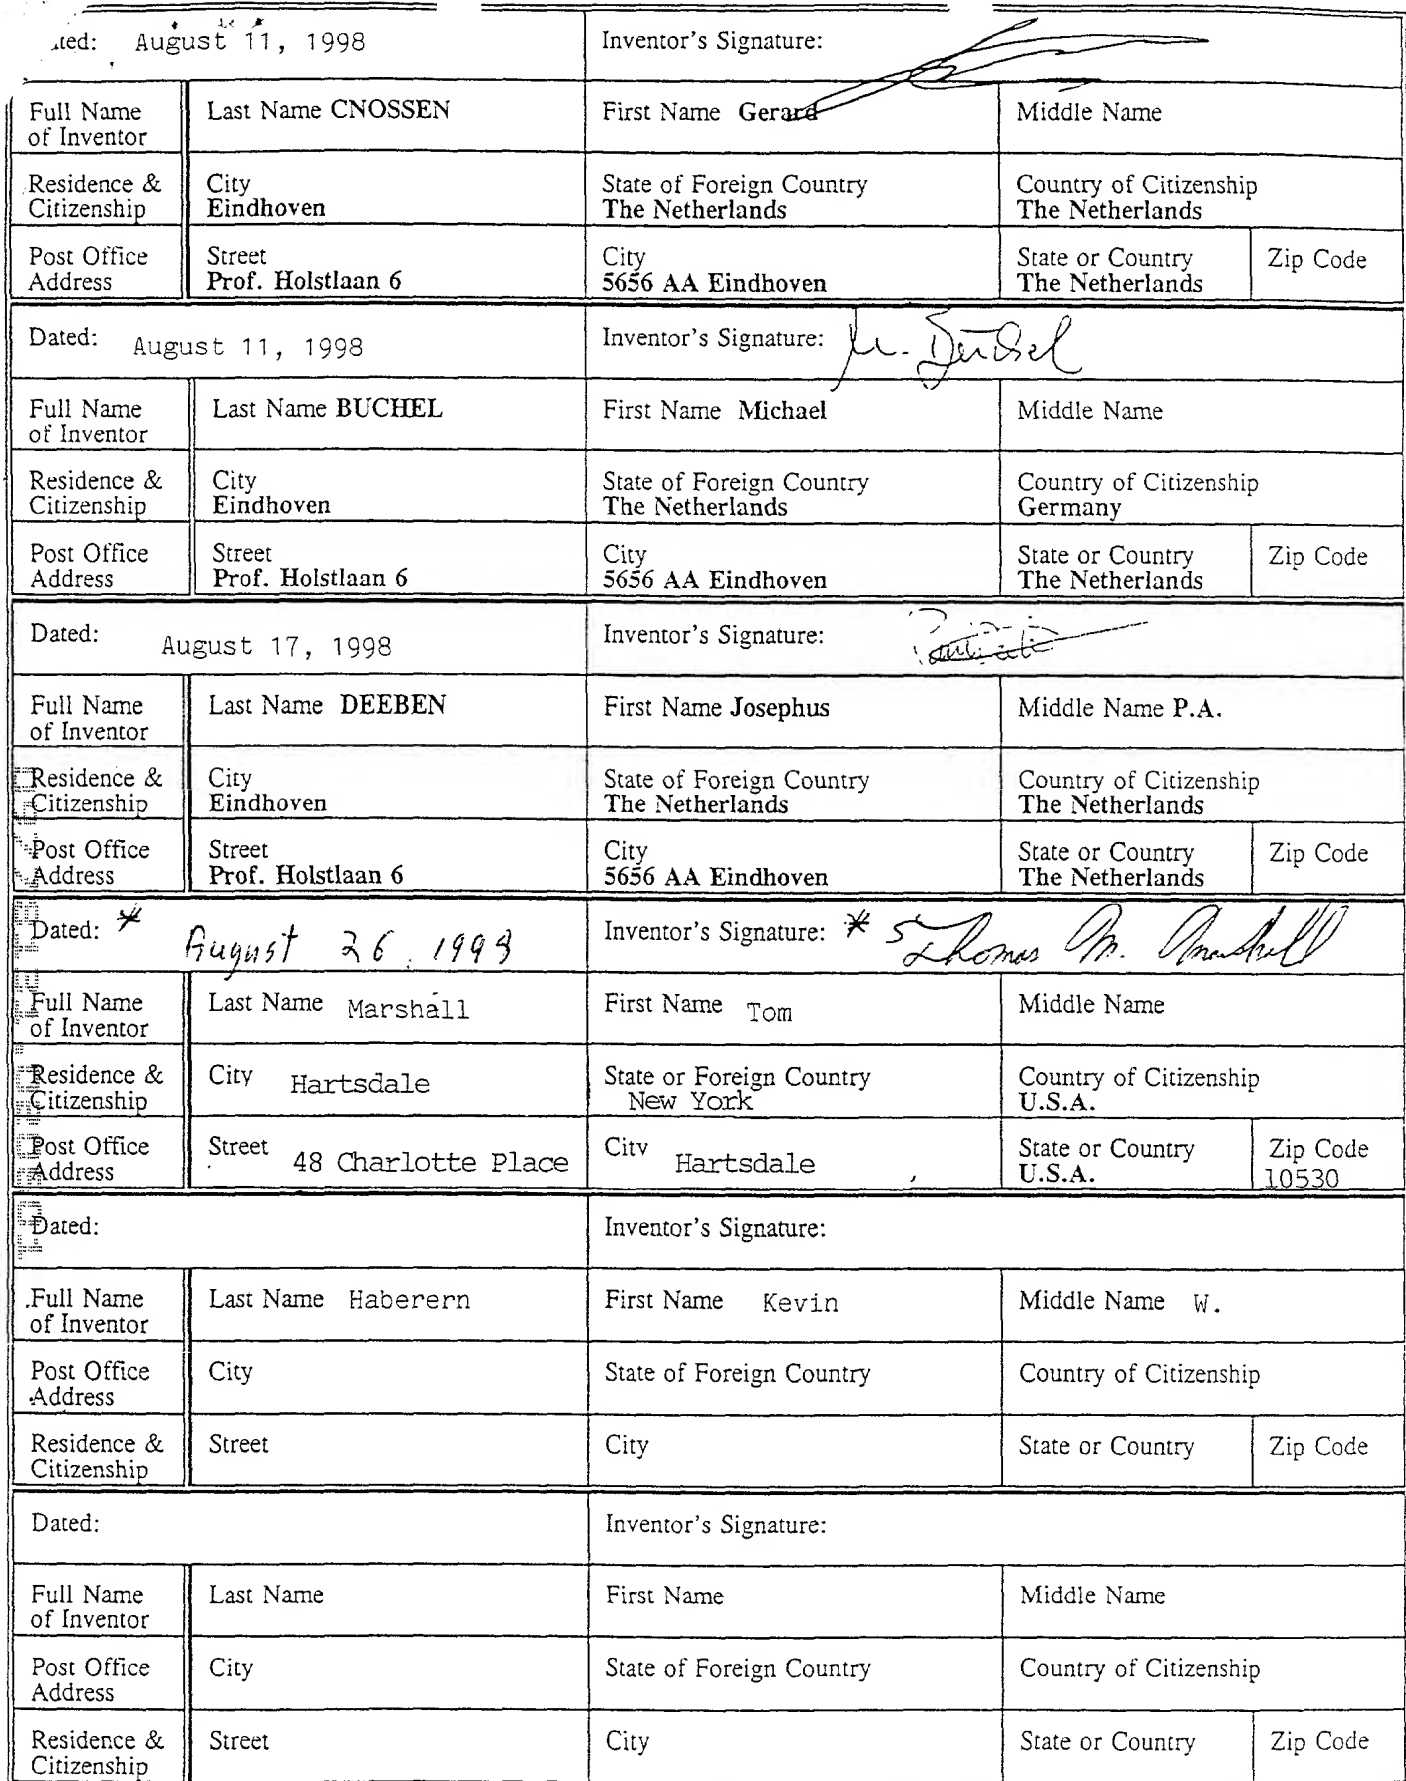 ated: August 11, 1998 Inventor's Signature:
Full Name of Inventor Last Name CNOSSEN First Name Gerard Middle Name
Residence & Citizenship City Eindhoven State of Foreign Country The Netherlands Country of Citizenship The Netherlands
Post Office Address Street Prof. Holstlaan 6 City 5656 AA Eindhoven State or Country The Netherlands Zip Code
Dated: August 11, 1998 Inventor's Signature:
Full Name of Inventor Last Name BUCHEL First Name Michael Middle Name
Residence & Citizenship City Eindhoven State of Foreign Country The Netherlands Country of Citizenship Germany
Post Office Address Street Prof. Holstlaan 6 City 5656 AA Eindhoven State or Country The Netherlands Zip Code
Dated: August 17, 1998 Inventor's Signature:
Full Name of Inventor Last Name DEEBEN First Name Josephus Middle Name P.A.
Residence & Citizenship City Eindhoven State of Foreign Country The Netherlands Country of Citizenship The Netherlands
Post Office Address Street Prof. Holstlaan 6 City 5656 AA Eindhoven State or Country The Netherlands Zip Code
Dated: * August 26, 1998 Inventor's Signature: * Thomas M. Marshall
Full Name of Inventor Last Name Marshall First Name Tom Middle Name
Residence & Citizenship City Hartsdale State or Foreign Country New York Country of Citizenship U.S.A.
Post Office Address Street 48 Charlotte Place City Hartsdale State or Country U.S.A. Zip Code 10530
Dated: Inventor's Signature:
Full Name of Inventor Last Name Haberern First Name Kevin Middle Name W.
Post Office Address City State of Foreign Country Country of Citizenship
Residence & Citizenship Street City State or Country Zip Code
Dated: Inventor's Signature:
Full Name of Inventor Last Name First Name Middle Name
Post Office Address City State of Foreign Country Country of Citizenship
Residence & Citizenship Street City State or Country Zip Code